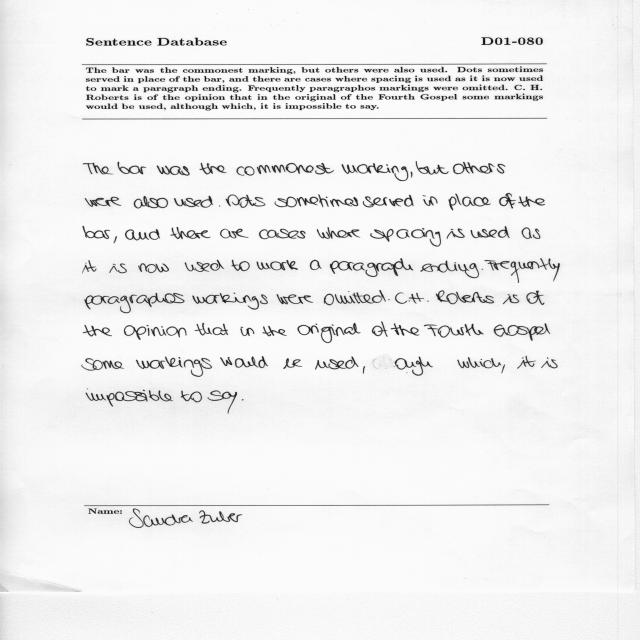 Sentence Database D01-080
The bar was the commonest marking, but others were also used. Dots sometimes
served in place of the bar, and there are cases where spacing is used as it is now used
to mark a paragraph ending. Frequently paragraphos markings were omitted. C. H.
Roberts is of the opinion that in the original of the Fourth Gospel some markings
would be used, although which, it is impossible to say.
The bar was the commonest marking, but others
were also used. Dots sometimes served in place of the
bar, and there are cases where spacing is used as
it is now used to mark a paragraph ending. Frequently
paragraphos markings were omitted. C.H. Roberts is of
the opinion that in the original of the Fourth Gospel
some markings would be used, which, it is
impossible to say.
Name: Sandra Zuber